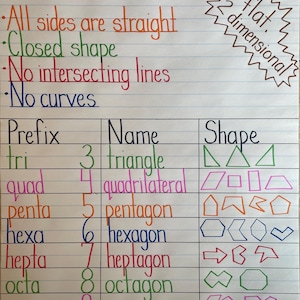 flat,
2 dimensional
·All sides are straight
·Closed shape
·No intersecting lines
·No curves
Prefix Name Shape
tri 3 triangle
quad 4 quadrilateral
penta 5 pentagon
hexa 6 hexagon
hepta 7 heptagon
octa 8 octagon